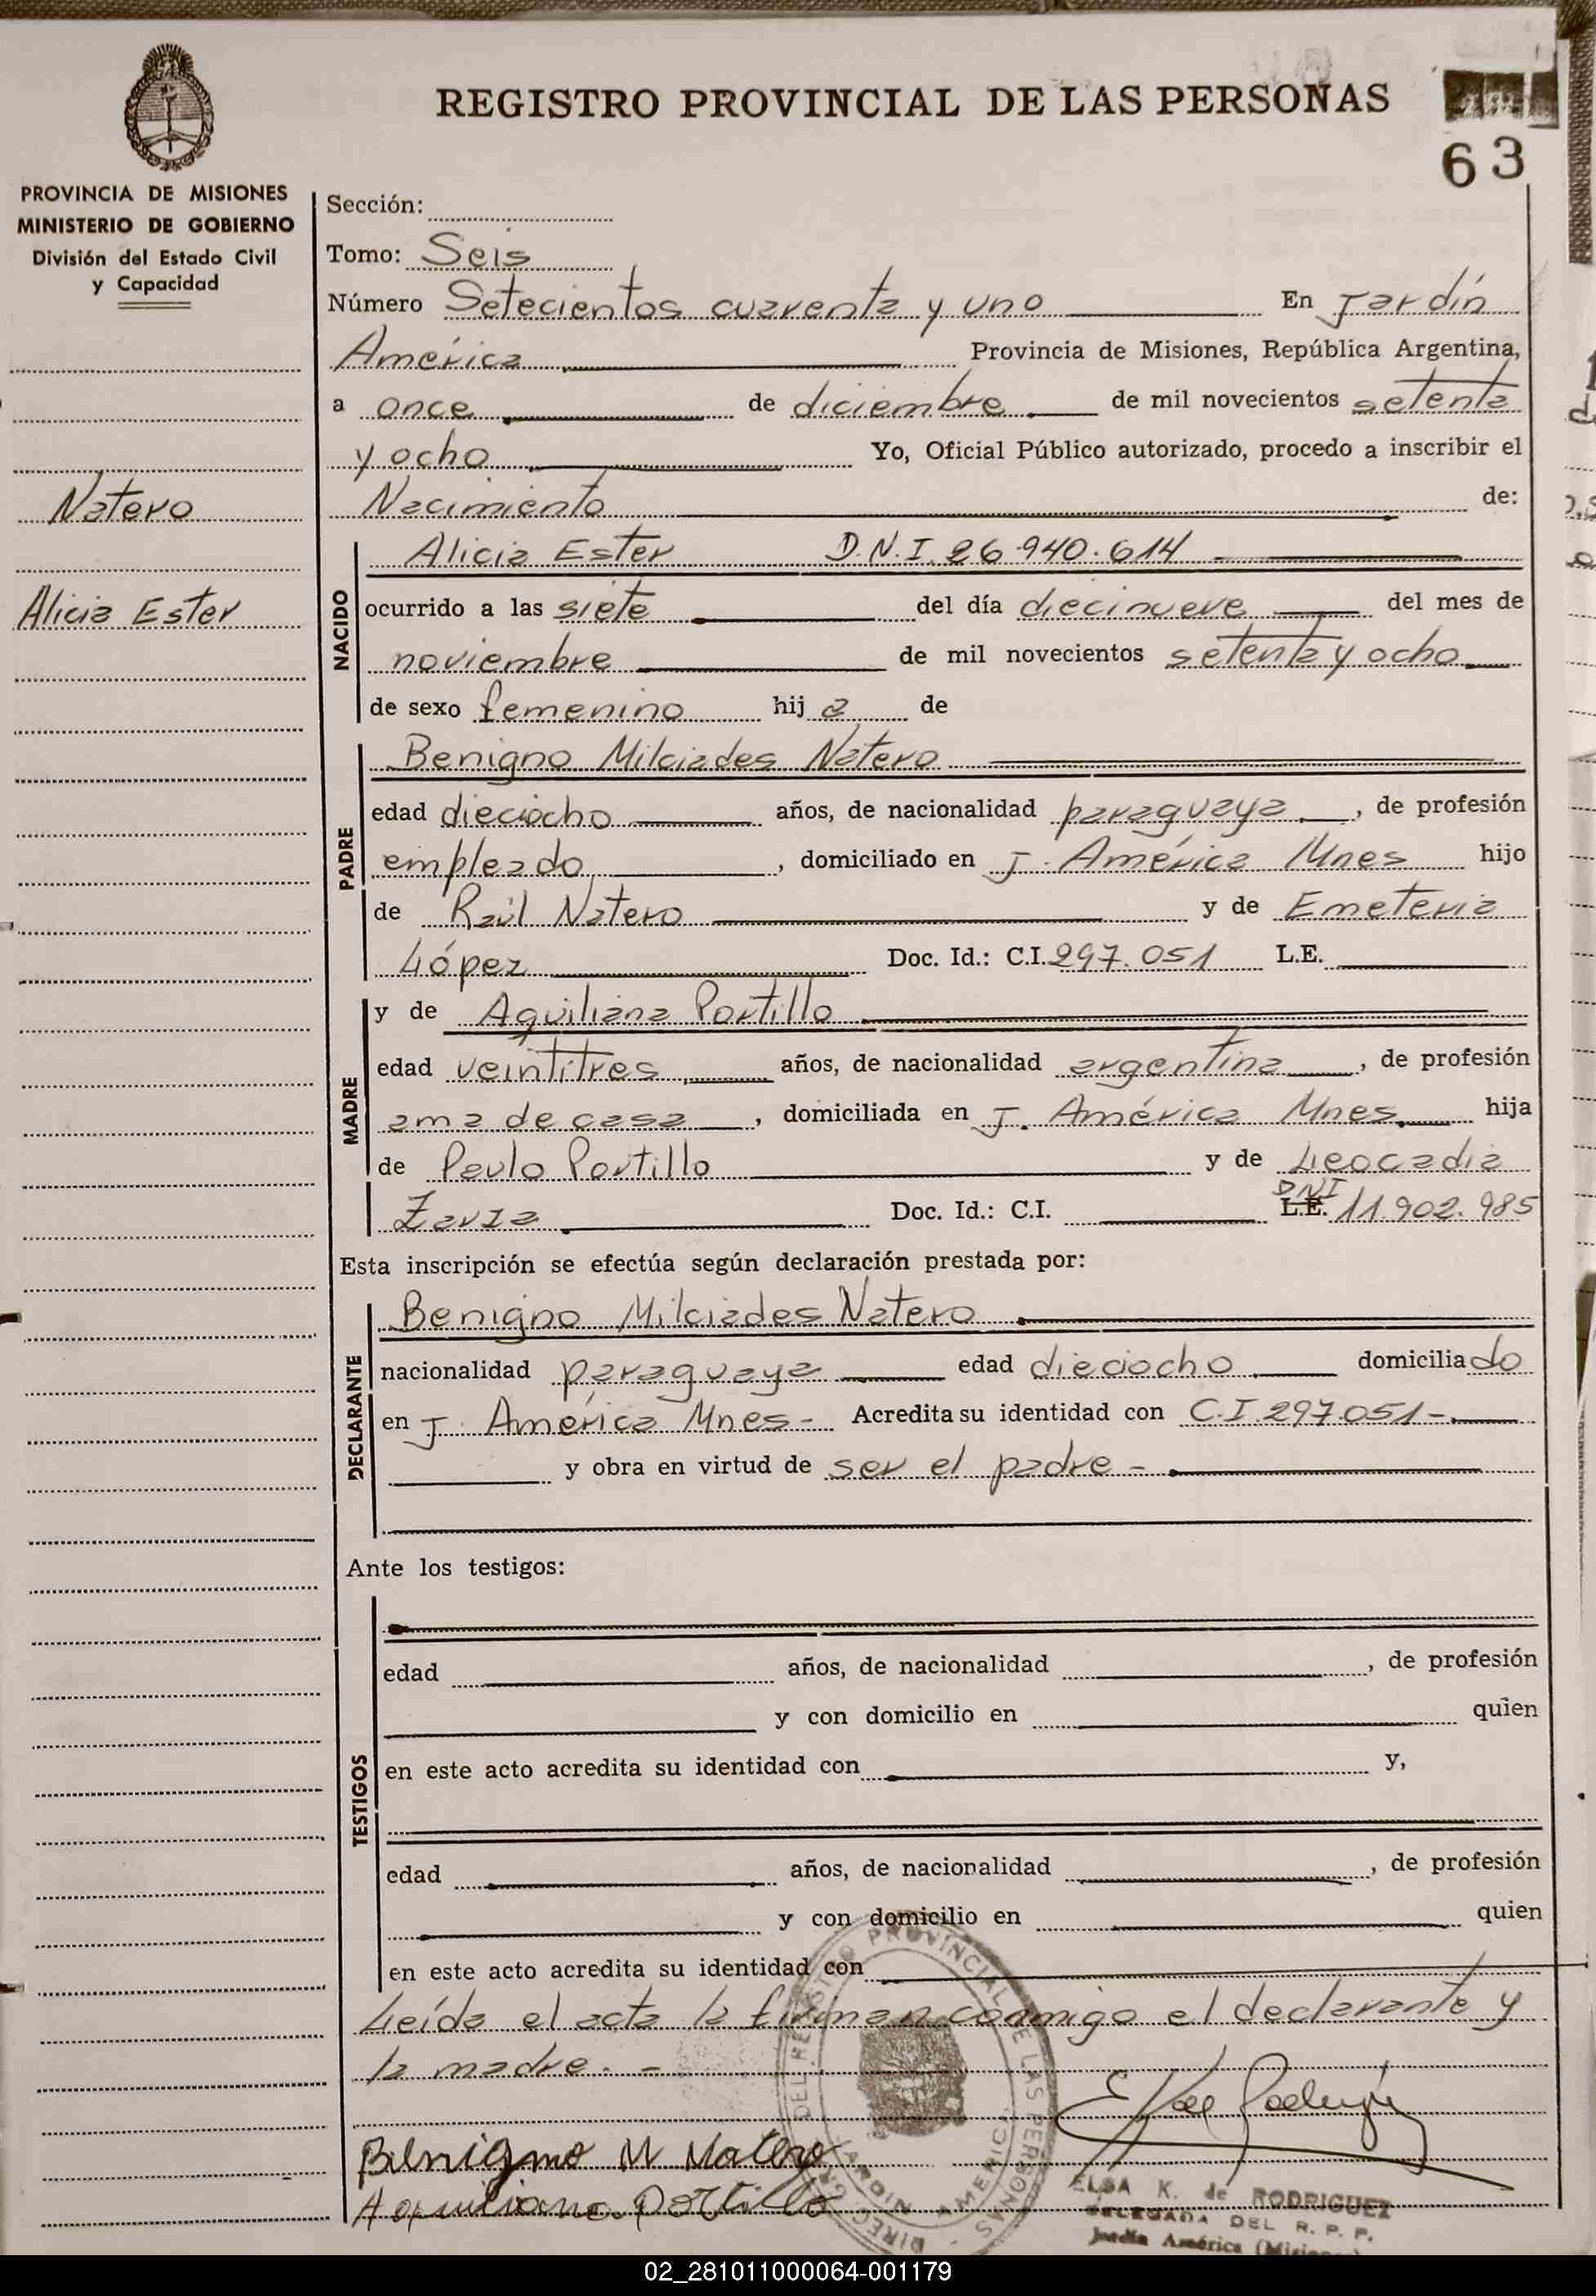 REGISTRO PROVINCIAL DE LAS PERSONAS
63
PROVINCIA DE MISIONES
MINISTERIO DE GOBIERNO
División del Estado Civil
y Capacidad
Natero
Alicia Ester
Sección:
Tomo: Seis
Número Setecientos cuarenta y uno En Jardín
América Provincia de Misiones, República Argentina,
a once de diciembre de mil novecientos setenta
y ocho Yo, Oficial Público autorizado, procedo a inscribir el
Nacimiento de:
NACIDO
Alicia Ester D.N.I. 26.940.614
ocurrido a las siete del día diecinueve del mes de
noviembre de mil novecientos setenta y ocho
de sexo femenino hija de
PADRE
Benigno Milciades Natero
edad dieciocho años, de nacionalidad paraguaya, de profesión
empleado, domiciliado en J. América Mnes hijo
de Raúl Natero y de Emeteria
López Doc. Id.: C.I. 297.051 L.E.
MADRE
y de Aquiliana Portillo
edad veintitres años, de nacionalidad argentina, de profesión
ama de casa, domiciliada en J. América Mnes. hija
de Paulo Portillo y de Leocadia
Zarza Doc. Id.: C.I. L.E. DNI 11.902.985
Esta inscripción se efectúa según declaración prestada por:
DECLARANTE
Benigno Milciades Natero
nacionalidad paraguaya edad dieciocho domiciliado
en J. América Mnes- Acredita su identidad con C.I. 297.051-
y obra en virtud de ser el padre -
Ante los testigos:
TESTIGOS
edad años, de nacionalidad , de profesión
y con domicilio en quien
en este acto acredita su identidad con y,
edad años, de nacionalidad , de profesión
y con domicilio en quien
en este acto acredita su identidad con
Leída el acta la firman conmigo el declarante y
la madre. -
Benigno M Natero
Aquiliana Portillo
ELSA K. de RODRIGUEZ
DELEGADA DEL R. P. P.
Jardín América
DEL REGISTRO PROVINCIAL DE LAS PERSONAS
JARDIN AMERICA
02_281011000064-001179